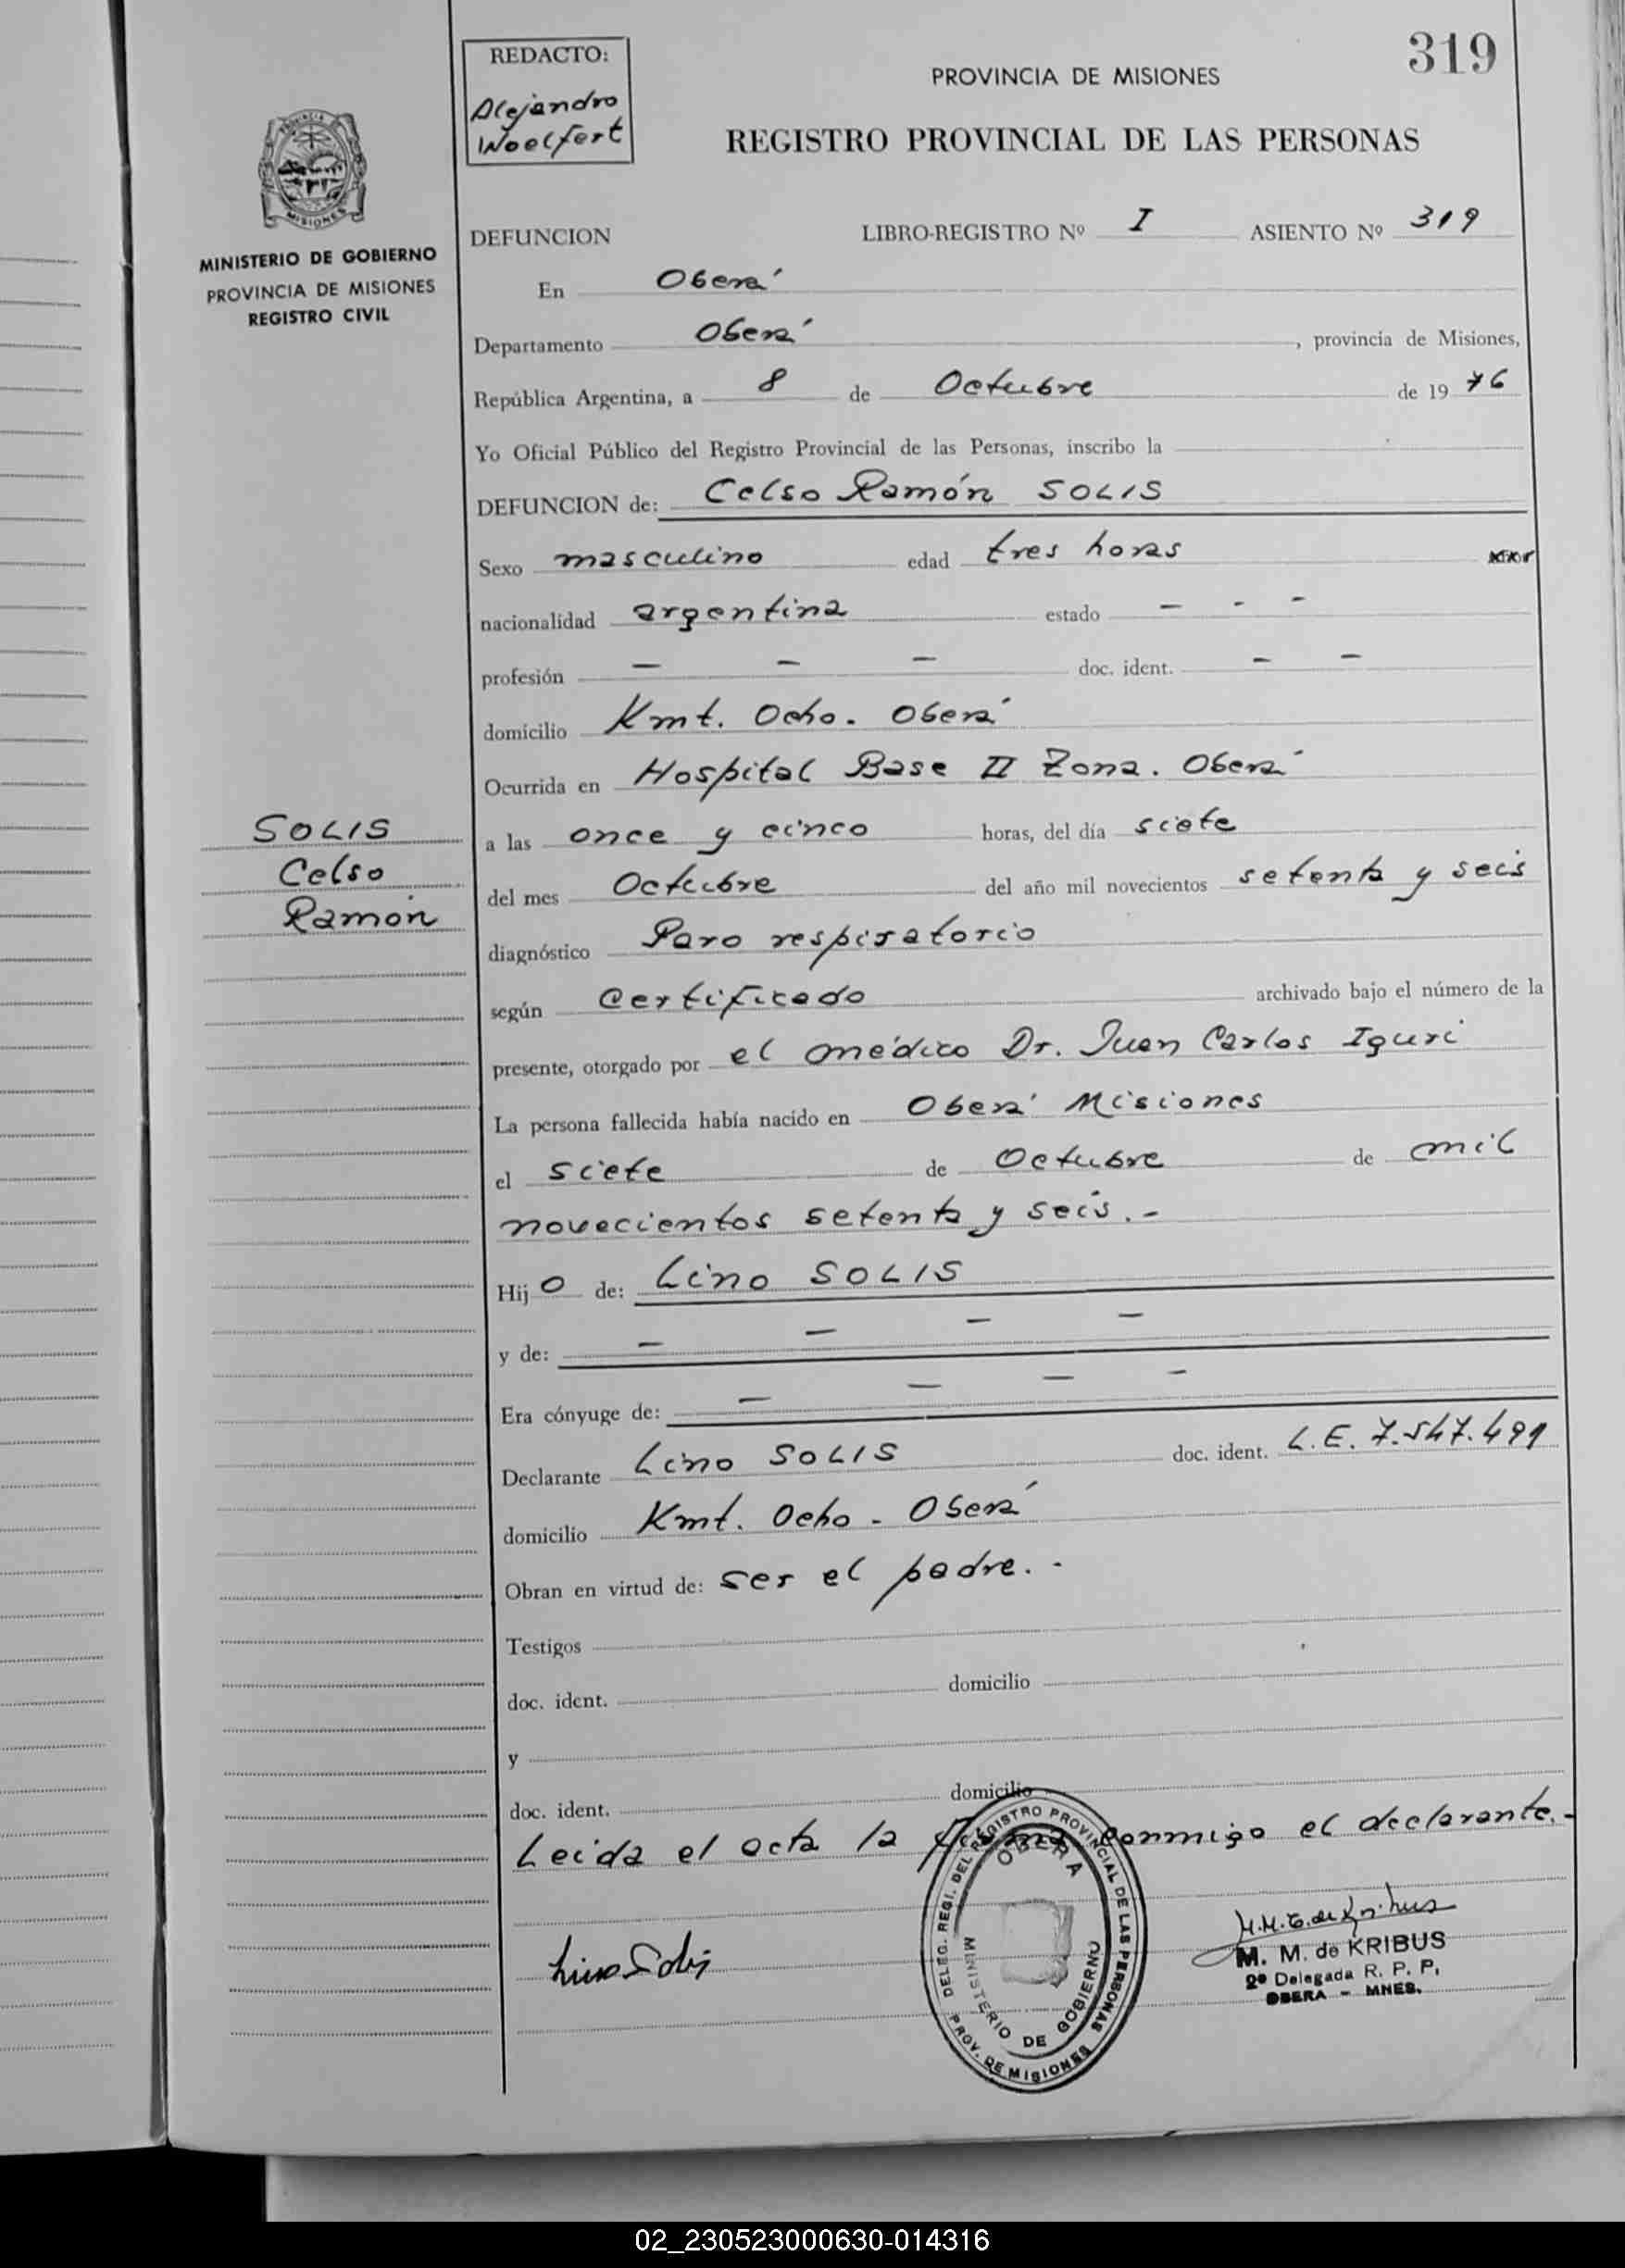 319
REDACTO:
Alejandro
Woelfert
PROVINCIA DE MISIONES
REGISTRO PROVINCIAL DE LAS PERSONAS
PROVINCIA
MISIONES
MINISTERIO DE GOBIERNO
PROVINCIA DE MISIONES
REGISTRO CIVIL
DEFUNCION LIBRO-REGISTRO Nº I ASIENTO Nº 319
En Oberá
Departamento Oberá , provincia de Misiones,
República Argentina, a 8 de Octubre de 19 76
Yo Oficial Público del Registro Provincial de las Personas, inscribo la
DEFUNCION de: Celso Ramón SOLIS
Sexo masculino edad tres horas
nacionalidad argentina estado - - -
profesión - - - doc. ident. - -
domicilio Kmt. Ocho. Oberá
Ocurrida en Hospital Base II Zona. Oberá
SOLIS
Celso
Ramón
a las once y cinco horas, del día siete
del mes Octubre del año mil novecientos setenta y seis
diagnóstico Paro respiratorio
según Certificado archivado bajo el número de la
presente, otorgado por el médico Dr. Juan Carlos Iguri
La persona fallecida había nacido en Oberá Misiones
el siete de Octubre de mil
novecientos setenta y seis.-
Hij o de: Lino SOLIS
y de: - - - -
Era cónyuge de: - - - -
Declarante Lino SOLIS doc. ident. L.E. 7.547.491
domicilio Kmt. Ocho - Oberá
Obran en virtud de: ser el padre.-
Testigos
doc. ident. domicilio
y
doc. ident. domicilio
Leida el acta la firma conmigo el declarante.-
Lino Solis
DELEG. REGI. DEL REGISTRO PROVINCIAL DE LAS PERSONAS
OBERA
MINISTERIO DE GOBIERNO
PROV. DE MISIONES
M. M. de KRIBUS
2º Delegada R. P. P.
OBERA - MNES.
02_230523000630-014316